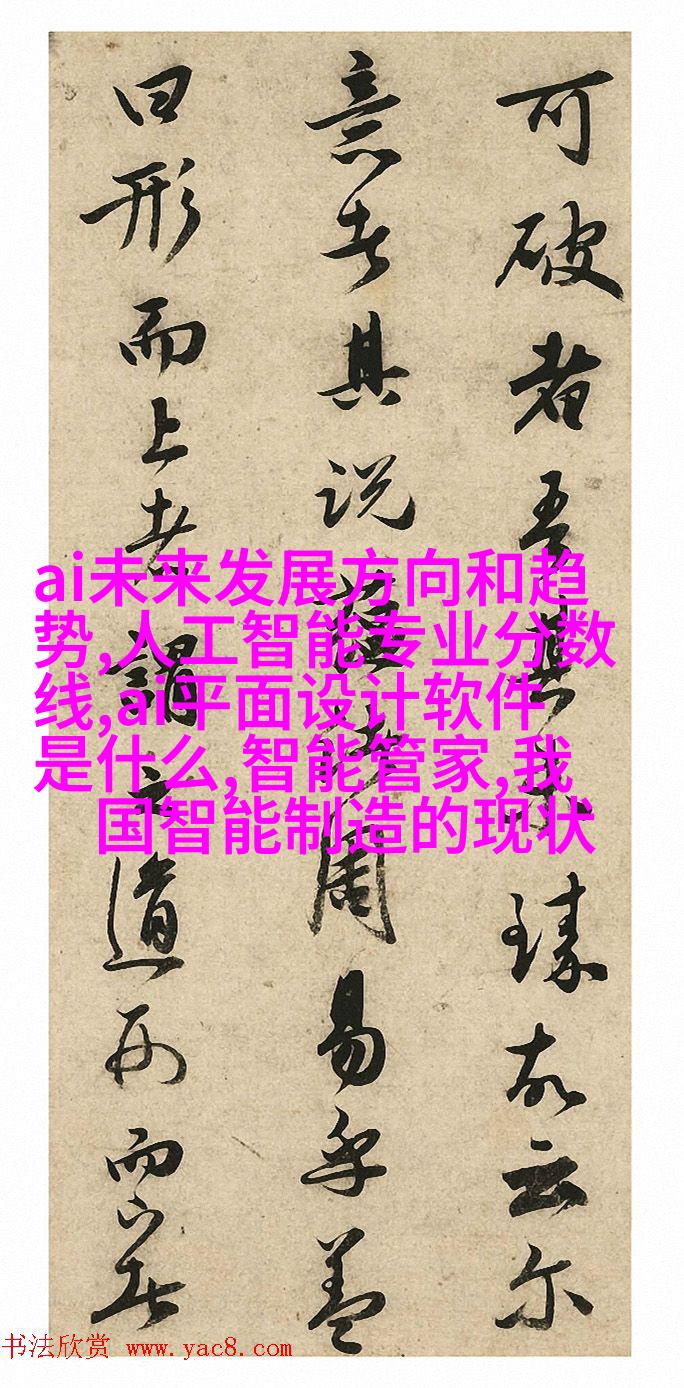 可破者吾云尔
意者其說周易乎盖
曰形而上者謂之道形而下者
ai未来发展方向和趋
势,人工智能专业分数
线,ai平面设计软件
是什么,智能管家,我
国智能制造的现状
书法欣赏 www.yac8.com